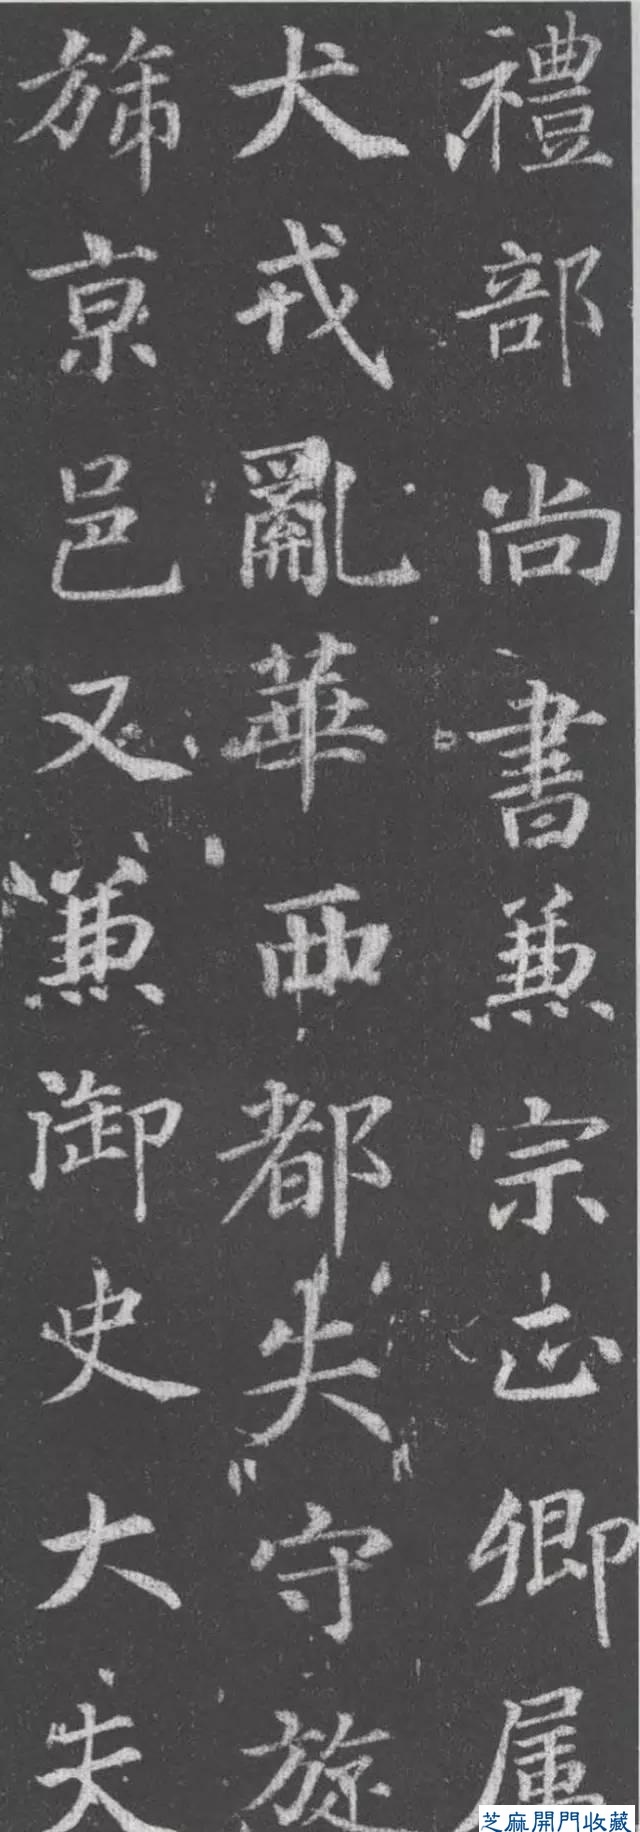 禮部尚書兼宗正卿属
犬戎亂華西都失守旋
旆京邑又兼御史大夫
芝麻開門收藏